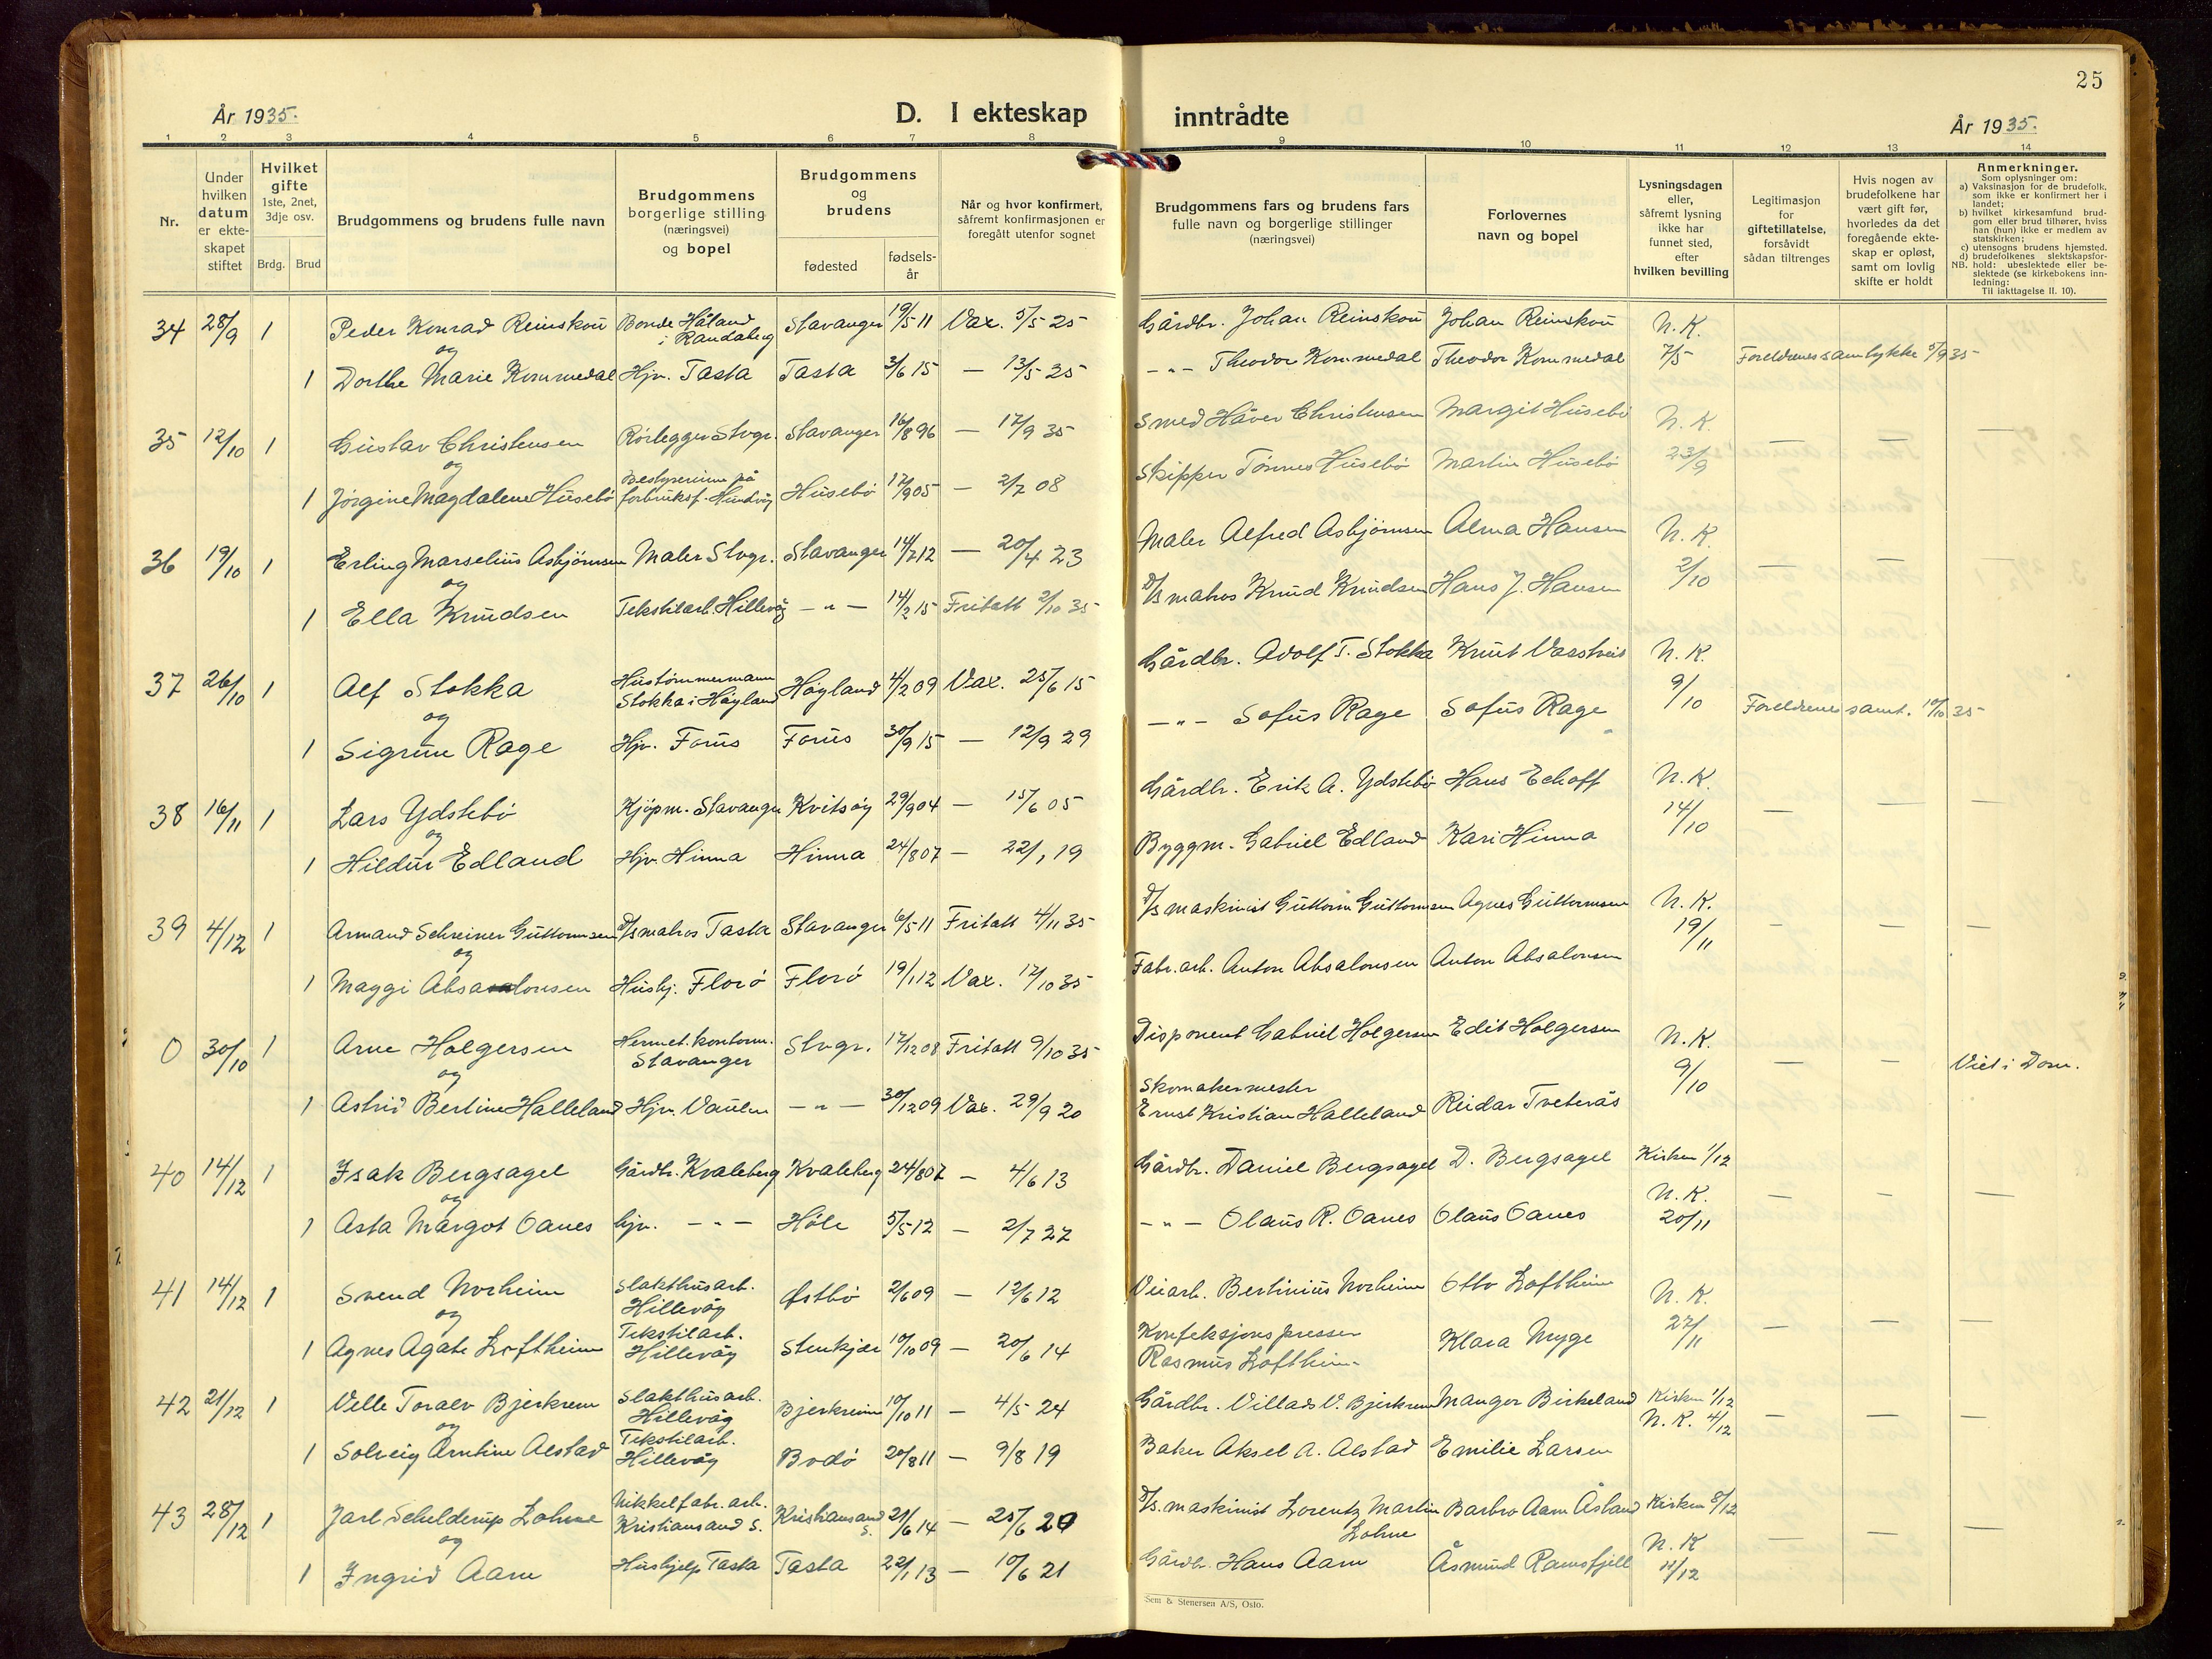 25
År 1935.
D. I ekteskap inntrådte
År 1935.
1 2 3 4 5 6 7 8 9 10 11 12 13 14
Nr.
Under hvilken datum er ekteskapet stiftet
Hvilket gifte 1ste, 2net, 3dje osv.
Brdg. Brud
Brudgommens og brudens fulle navn
Brudgommens borgerlige stilling (næringsvei) og bopel
Brudgommens og brudens
fødested
fødselsår
Når og hvor konfirmert, såfremt konfirmasjonen er foregått utenfor sognet
Brudgommens fars og brudens fars fulle navn og borgerlige stillinger (næringsvei)
Forlovernes navn og bopel
Lysningsdagen eller, såfremt lysning ikke har funnet sted, efter hvilken bevilling
Legitimasjon for giftetillatelse, forsåvidt sådan tiltrenges
Hvis nogen av brudefolkene har vært gift før, hvorledes da det foregående ekteskap er opløst, samt om lovlig skifte er holdt
Anmerkninger.
Som oplysninger om:
a) Vaksinasjon for de brudefolk, som ikke er konfirmert her i landet;
b) hvilket kirkesamfund brudgom eller brud tilhører, hviss han (hun) ikke er medlem av statskirken;
c) utensogns brudens hjemsted.
d) brudefolkenes slektskapsforhold: ubeslektede eller beslektede (se kirkebokens innledning:
NB.
Til iakttagelse II. 10).
34 28/9 1 Peder Konrad Reinskou Bonde Håland i Randaberg Stavanger 19/5 11 Vax. 5/5 25 Gårdbr. Johan Reinskou Johan Reinskou N.K.
og
1 Dorthe Marie Kommedal Hjv. Tasta Tasta 3/6 15 — 13/5 25 —"— Theodor Kommedal Theodor Kommedal 7/5 Foreldrenes samtykke 5/9 35
35 12/10 1 Gustav Christensen Rørlegger Stvgr. Stavanger 16/8 96 — 17/9 35 Smed Håver Christensen Margit Husebø N.K. — — —
og
1 Jørgine Magdalene Husebø Bestyrerinne på forbruksf. Hundvåg Husebø 17/9 05 — 2/7 08 Skipper Tønnes Husebø Martin Husebø 23/9
36 19/10 1 Erling Marselius Asbjørnsen Maler Stvgr. Stavanger 14/7 12 — 20/4 23 Maler Alfred Asbjørnsen Alma Hansen N.K. — — —
og
1 Ella Knudsen Tekstilarb. Hillevåg —"— 14/2 15 Fritatt 2/10 35 D/s matros Knud Knudsen Hans J. Hansen 2/10
37 26/10 1 Alf Stokka Hustømmermann Stokka i Høyland Høyland 4/2 09 Vax. 25/6 15 Gårdbr. Adolf T. Stokka Knut Vasstveit N.K.
og
1 Sigrun Rage Hjv. Forus Forus 30/9 15 — 12/9 29 —"— Sofus Rage Sofus Rage 9/10 Foreldrenes samt. 10/10 35
38 16/11 1 Lars Ydstebø Kjøpm. Stavanger Kvitsøy 29/9 04 — 15/6 05 Gårdbr. Erik A. Ydstebø Hans Eckoff N.K. — — —
og
1 Hildur Edland Hjv. Hinna Hinna 24/8 07 — 22/1 19 Byggm. Gabriel Edland Kari Hinna 14/10
39 4/12 1 Armand Schreiner Guttormsen D/s matros Tasta Stavanger 6/5 11 Fritatt 4/11 35 D/s maskinist Guttorm Guttormsen Agnes Guttormsen N.K. — — —
og
1 Maggi Absalonsen Husbj. Florø Florø 19/1 12 Vax. 17/10 35 Fabr.arb. Anton Absalonsen Anton Absalonsen 19/11
0 30/10 1 Arne Holgersen Hermet.kontorm. Stavanger Stvgr. 17/12 08 Fritatt 9/10 35 Disponent Gabriel Holgersen Edit Holgersen N.K. — — Viet i Dom.
og
1 Astrid Bertine Halleland Hjv. Vaulen —"— 30/12 09 Vax. 29/9 20 Skomakermester Ernst Kristian Halleland Reidar Tveterås 9/10
40 14/12 1 Isak Bergsagel Gårdbr. Kvaleberg Kvaleberg 24/8 07 — 4/6 13 Gårdbr. Daniel Bergsagel D. Bergsagel Kirken 1/12 — — —
og
1 Asta Margot Oanes hjv. —"— Høle 5/5 12 — 2/7 27 —"— Olaus R. Oanes Olaus Oanes N.K. 20/11
41 14/12 1 Svend Norheim Slakthusarb. Hillevåg Østbø 2/6 09 — 12/6 12 Veiarb. Bertinius Norheim Otto Loftheim N.K. — — —
og
1 Agnes Agate Loftheim Tekstilarb. Hillevåg Stenkjær 10/10 09 — 20/6 14 Konfeksjonspresser Rasmus Loftheim Klara Myge 27/11
42 21/12 1 Velle Toralv Bjerkrem Slakthusarb. Hillevåg Bjerkreim 10/10 11 — 4/5 24 Gårdbr. Villads V. Bjerkrem Mangor Birkeland Kirken 1/12 N.K. 4/12 — — —
og
1 Solveig Arntine Alstad Tekstilarb. Hillevåg Bodø 20/8 11 — 9/8 19 Baker Aksel A. Alstad Emilie Larsen
43 28/12 1 Jarl Schelderup Lohne Nikkelfabr.arb. Kristiansand S. Kristiansand S. 21/6 14 — 25/6 20 D/s. maskinist Lorentz Martin Lohne Barbro Aam Åsland Kirken 8/12 — — —
og
1 Ingrid Aam Hushjelp Tasta Tasta 22/1 13 — 10/6 21 Gårdbr. Hans Aam Åsmund Ramsfjell N.K 11/12
Sem & Stenersen A/S, Oslo.